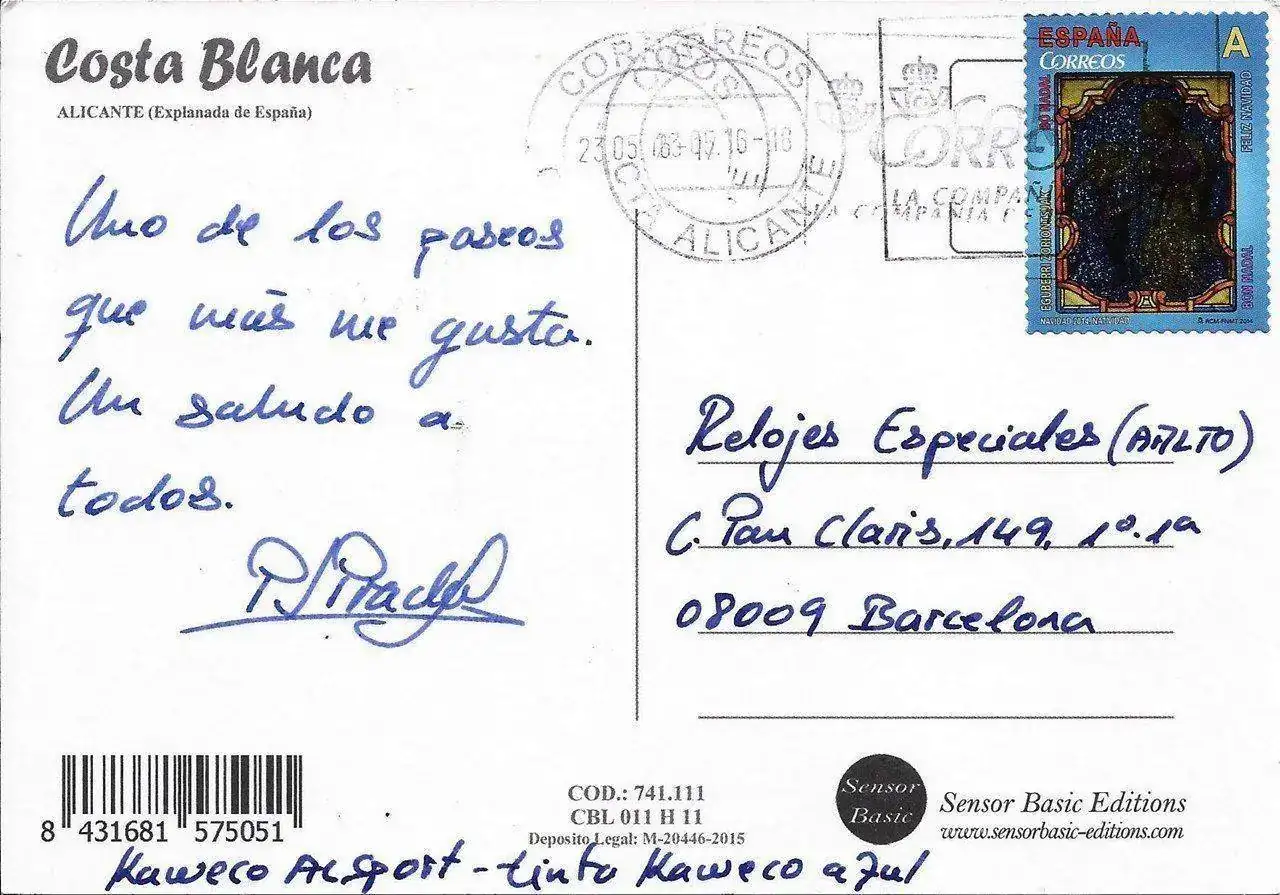 Costa Blanca
ALICANTE (Explanada de España)
Uno de los paseos
que más me gusta.
Un saludo a
todos.
CORREOS
CORREOS
CTA ALICANTE
CORREOS
LA COMPAÑÍA
ESPAÑA
A
CORREOS
BO NADAL
FELIZ NAVIDAD
EGUBERRI ZORIONTSUAK
BON NADAL
NAVIDAD 2014 NATIVIDAD
RCM-FNMT 2014
Relojes Especiales (AMLTO)
C. Pau Claris, 149, 1º.1ª
08009 Barcelona
8 431681 575051
COD.: 741.111
CBL 011 H 11
Deposito Legal: M-20446-2015
Sensor
Basic
Sensor Basic Editions
www.sensorbasic-editions.com
Kaweco ALSport - tinta Kaweco azul